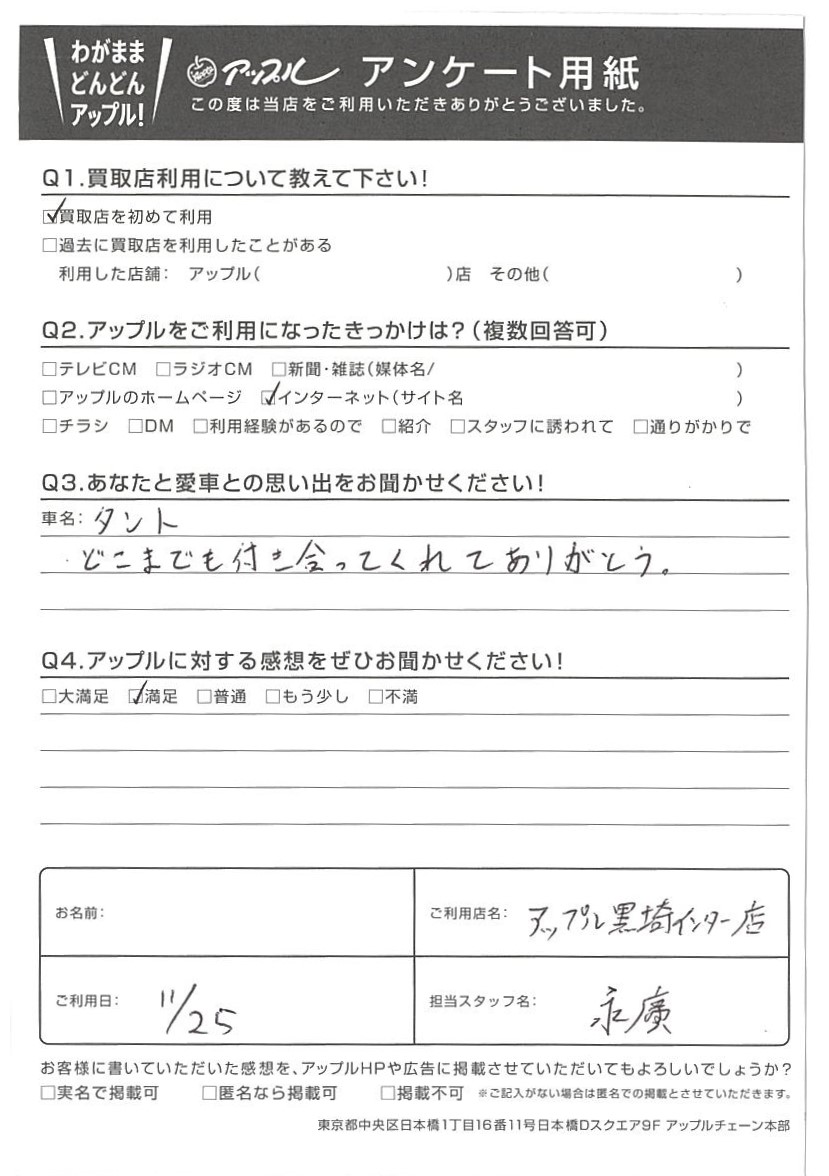 わがまま
どんどん
アップル!
アップル アンケート用紙
この度は当店をご利用いただきありがとうございました。
Q1.買取店利用について教えて下さい!
☑買取店を初めて利用
□過去に買取店を利用したことがある
利用した店舗: アップル( )店 その他( )
Q2.アップルをご利用になったきっかけは?(複数回答可)
□テレビCM □ラジオCM □新聞・雑誌(媒体名/ )
□アップルのホームページ ☑インターネット(サイト名 )
□チラシ □DM □利用経験があるので □紹介 □スタッフに誘われて □通りがかりで
Q3.あなたと愛車との思い出をお聞かせください!
車名: タント
どこまでも付き合ってくれてありがとう。
Q4.アップルに対する感想をぜひお聞かせください!
□大満足 ☑満足 □普通 □もう少し □不満
お名前:
ご利用店名: アップル黒埼インター店
ご利用日: 11/25
担当スタッフ名: 永廣
お客様に書いていただいた感想を、アップルHPや広告に掲載させていただいてもよろしいでしょうか?
□実名で掲載可 □匿名なら掲載可 □掲載不可 ※ご記入がない場合は匿名での掲載とさせていただきます。
東京都中央区日本橋1丁目16番11号日本橋Dスクエア9F アップルチェーン本部